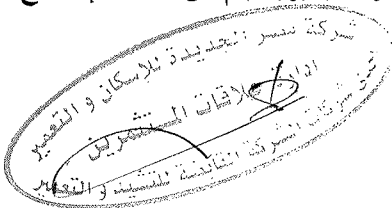 شركة مصر الجديدة للاسكان و التعمير
ادارة علاقات المستثمرين
شركات الشركة القابضة للتشييد و التعمير